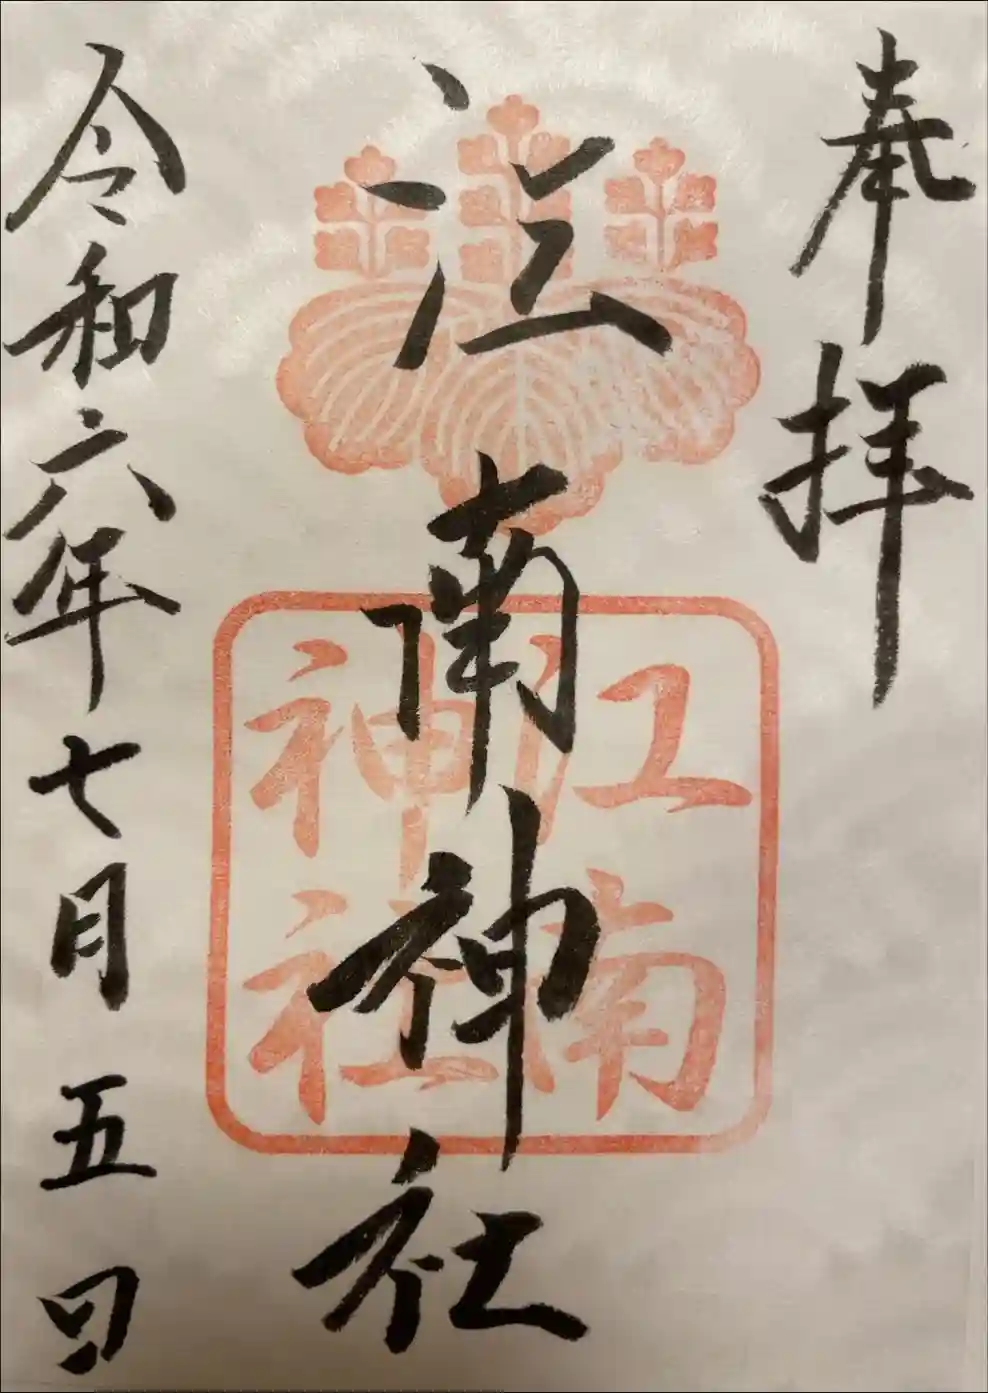 奉拝
江南神社
江南
神社
令和六年七月五日